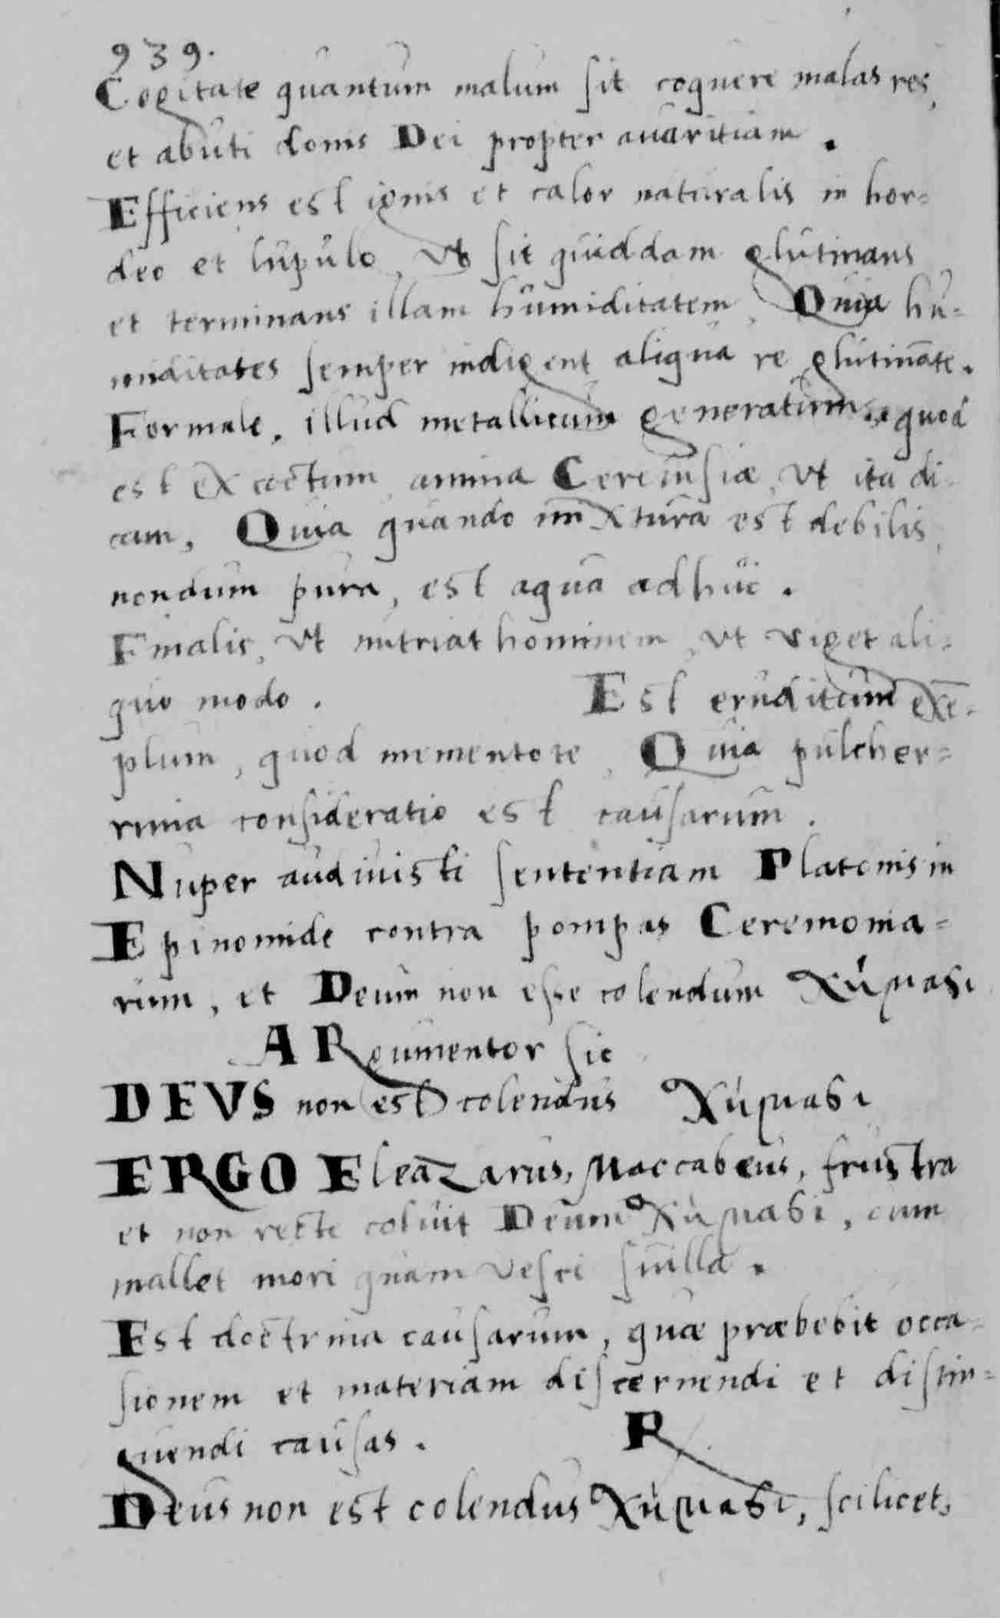 939.
Cogitate quantum malum sit coquere malas res,
et abuti donis Dei propter avaritiam.
Efficiens est ignis et calor naturalis in hor-
deo et lupulo, Vt sit quiddam glutinans
et terminans illam humiditatem, Quia hu-
miditates semper indigent aliqua re glutinãte.
Formale, illud metallicum generatium, quod
est excoctum, anima Cereuisiæ, Vt ita di-
cam, Quia quando mixtura est debilis,
nondum pura, est aqua adhuc.
Finalis, Vt nutriat hominem, Vt viget ali-
quo modo. Est eruditum exē-
plum, quod mementote, Quia pulcher-
rima consideratio est causarum.
Nuper audiuisti sententiam Platonis in
Epinomide contra pompas Ceremonia-
rum, et Deum non esse colendum
ARgumentor sic
DEVS non est colendus
ERGO Eleazarus, Maccabeus, frustra
et non recte coluit Deum, cum
mallet mori quam vesci suilla.
Est doctrina causarum, quæ præbebit occa-
sionem et materiam discernendi et distin-
guendi causas. R
Deus non est colendus, scilicet,